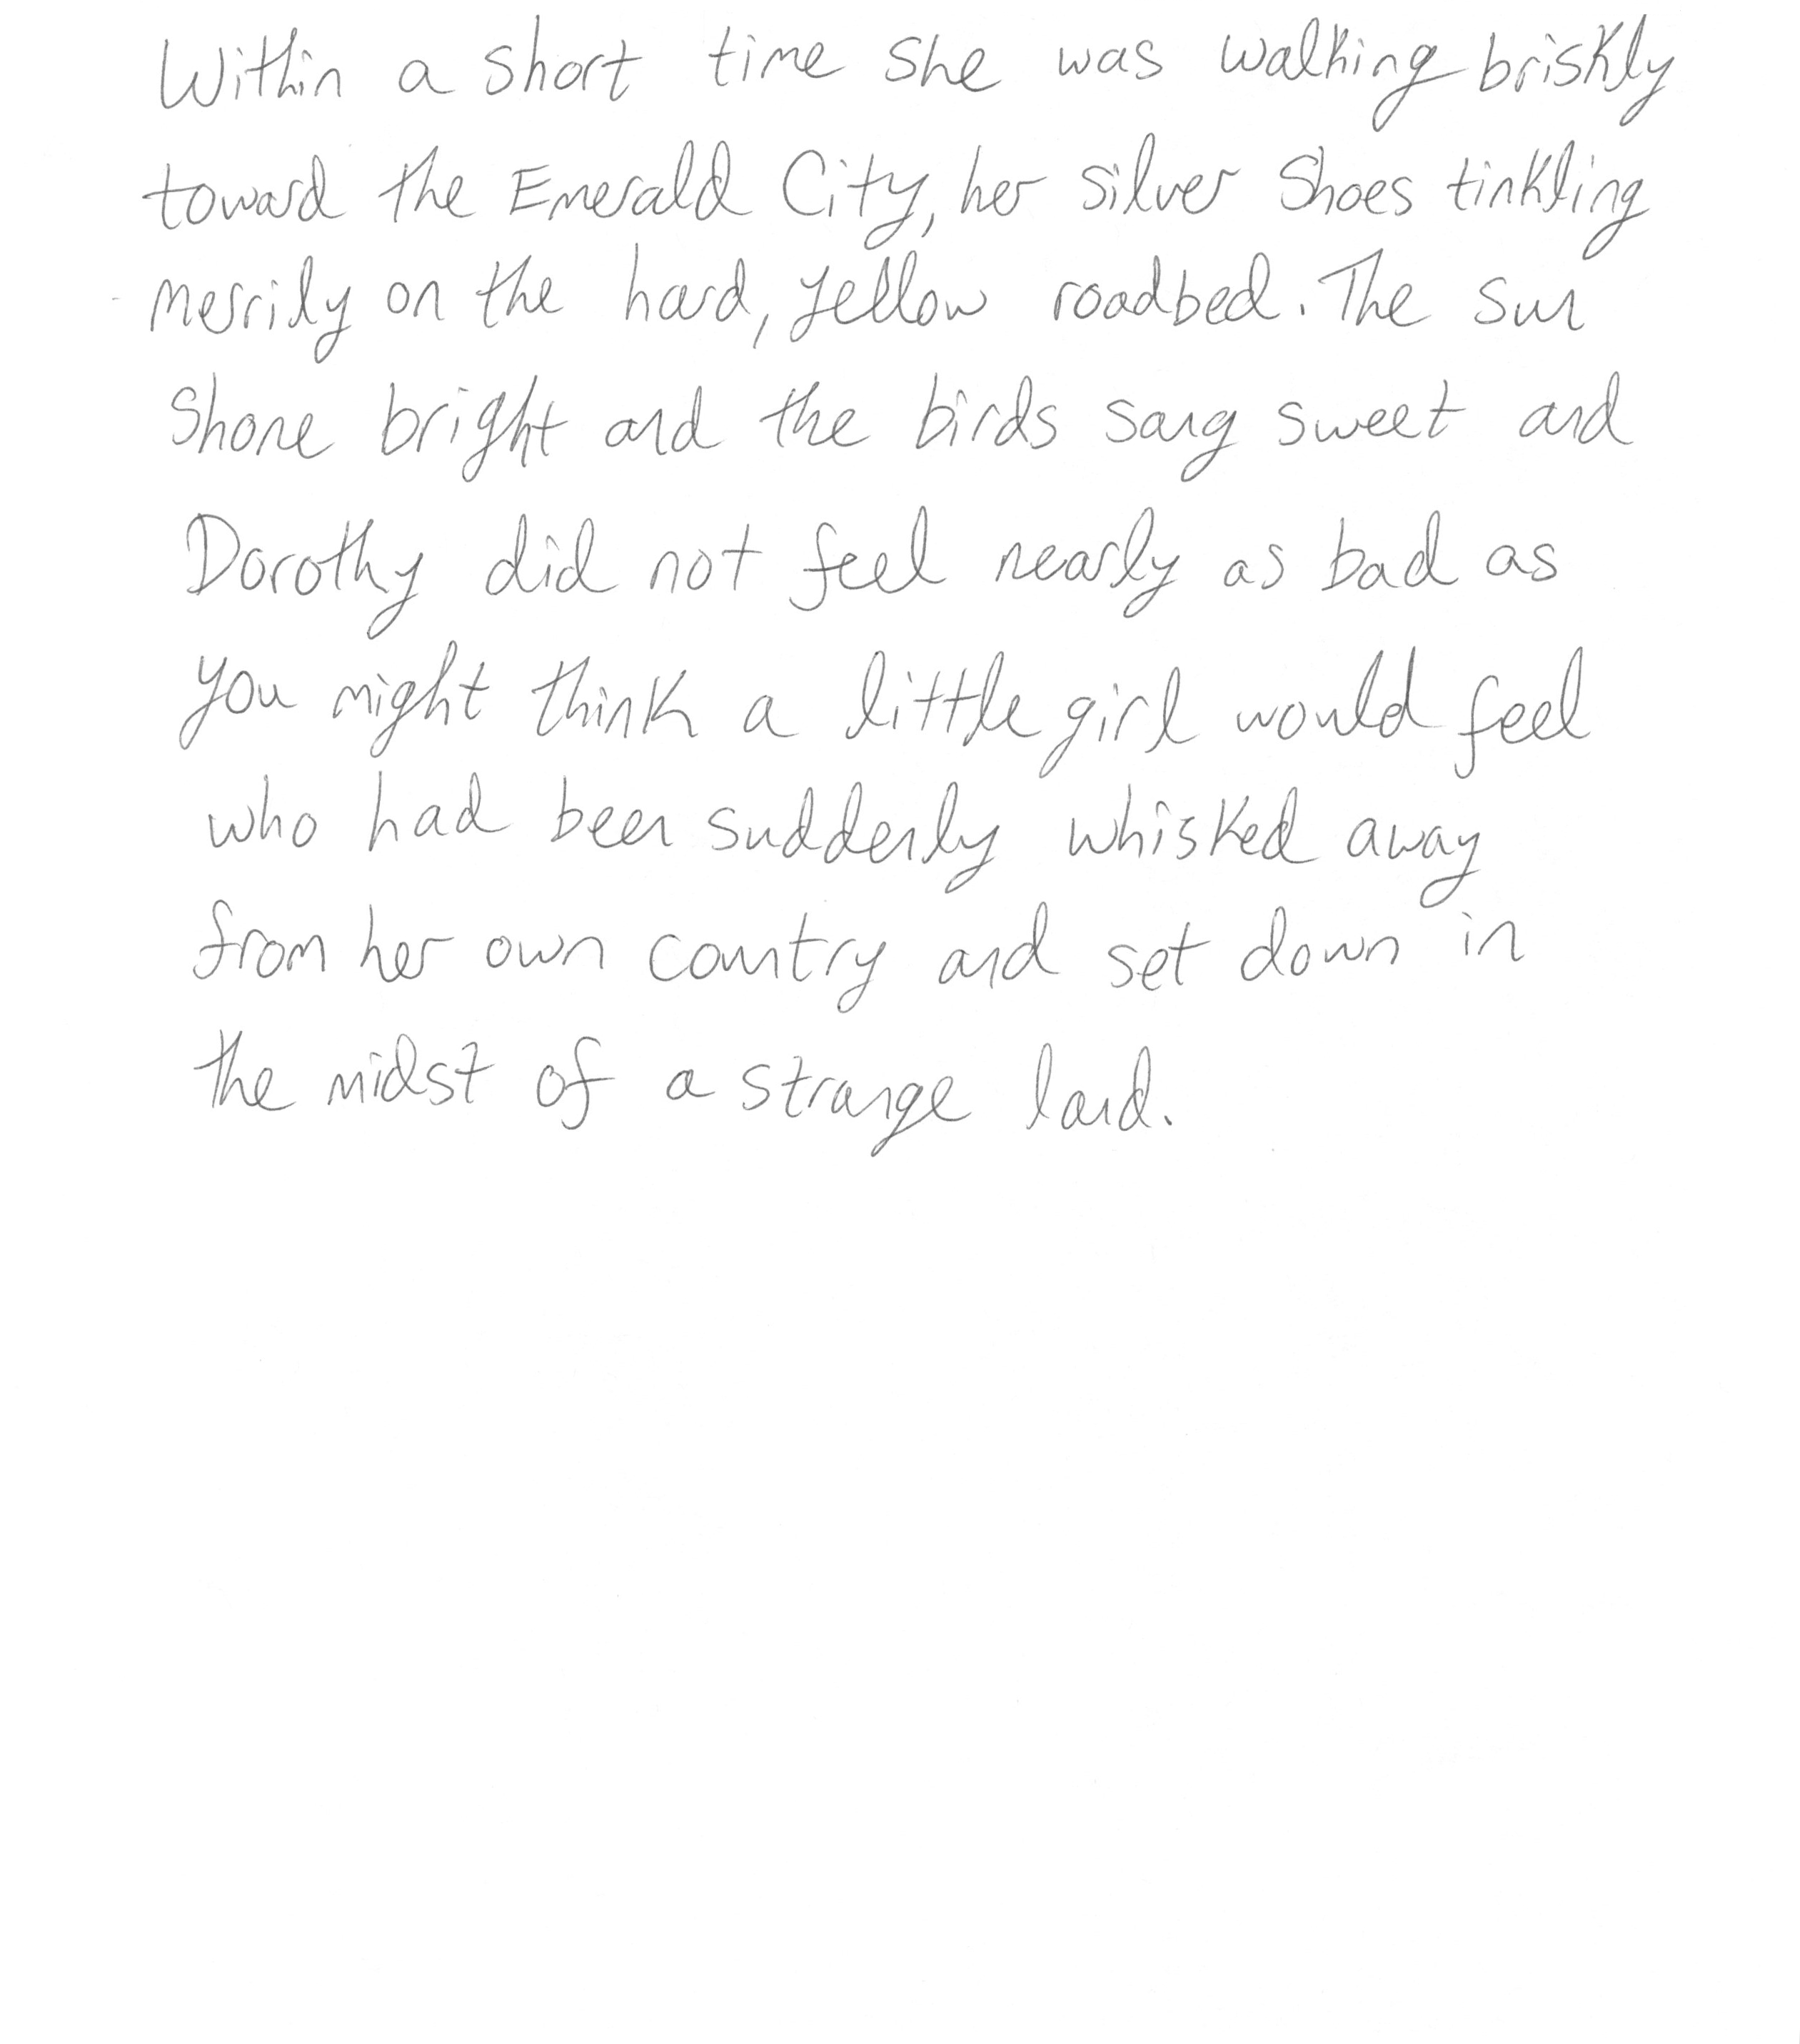 Within a short time she was walking briskly
toward the Emerald City, her silver Shoes tinkling
merrily on the hard, yellow roadbed. The sun
shone bright and the birds sang sweet and
Dorothy did not feel nearly as bad as
you might think a little girl would feel
who had been suddenly whisked away
from her own country and set down in
the midst of a strange land.